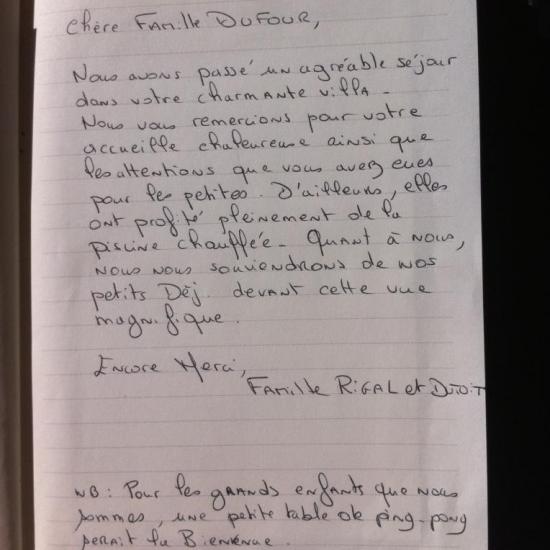 Chère Famille DUFOUR,
Nous avons passé un agréable séjour
dans votre charmante villa.
Nous vous remercions pour votre
accueille chaleureuse ainsi que
les attentions que vous avez eues
pour les petites. D'ailleurs, elles
ont profité pleinement de la
piscine chauffée. Quant à nous,
nous nous souviendrons de nos
petits Déj. devant cette vue
magnifique.
Encore Merci,
Famille RIGAL et
NB : Pour les grands enfants que nous
sommes, une petite table de ping-pong
serait la Bienvenue.